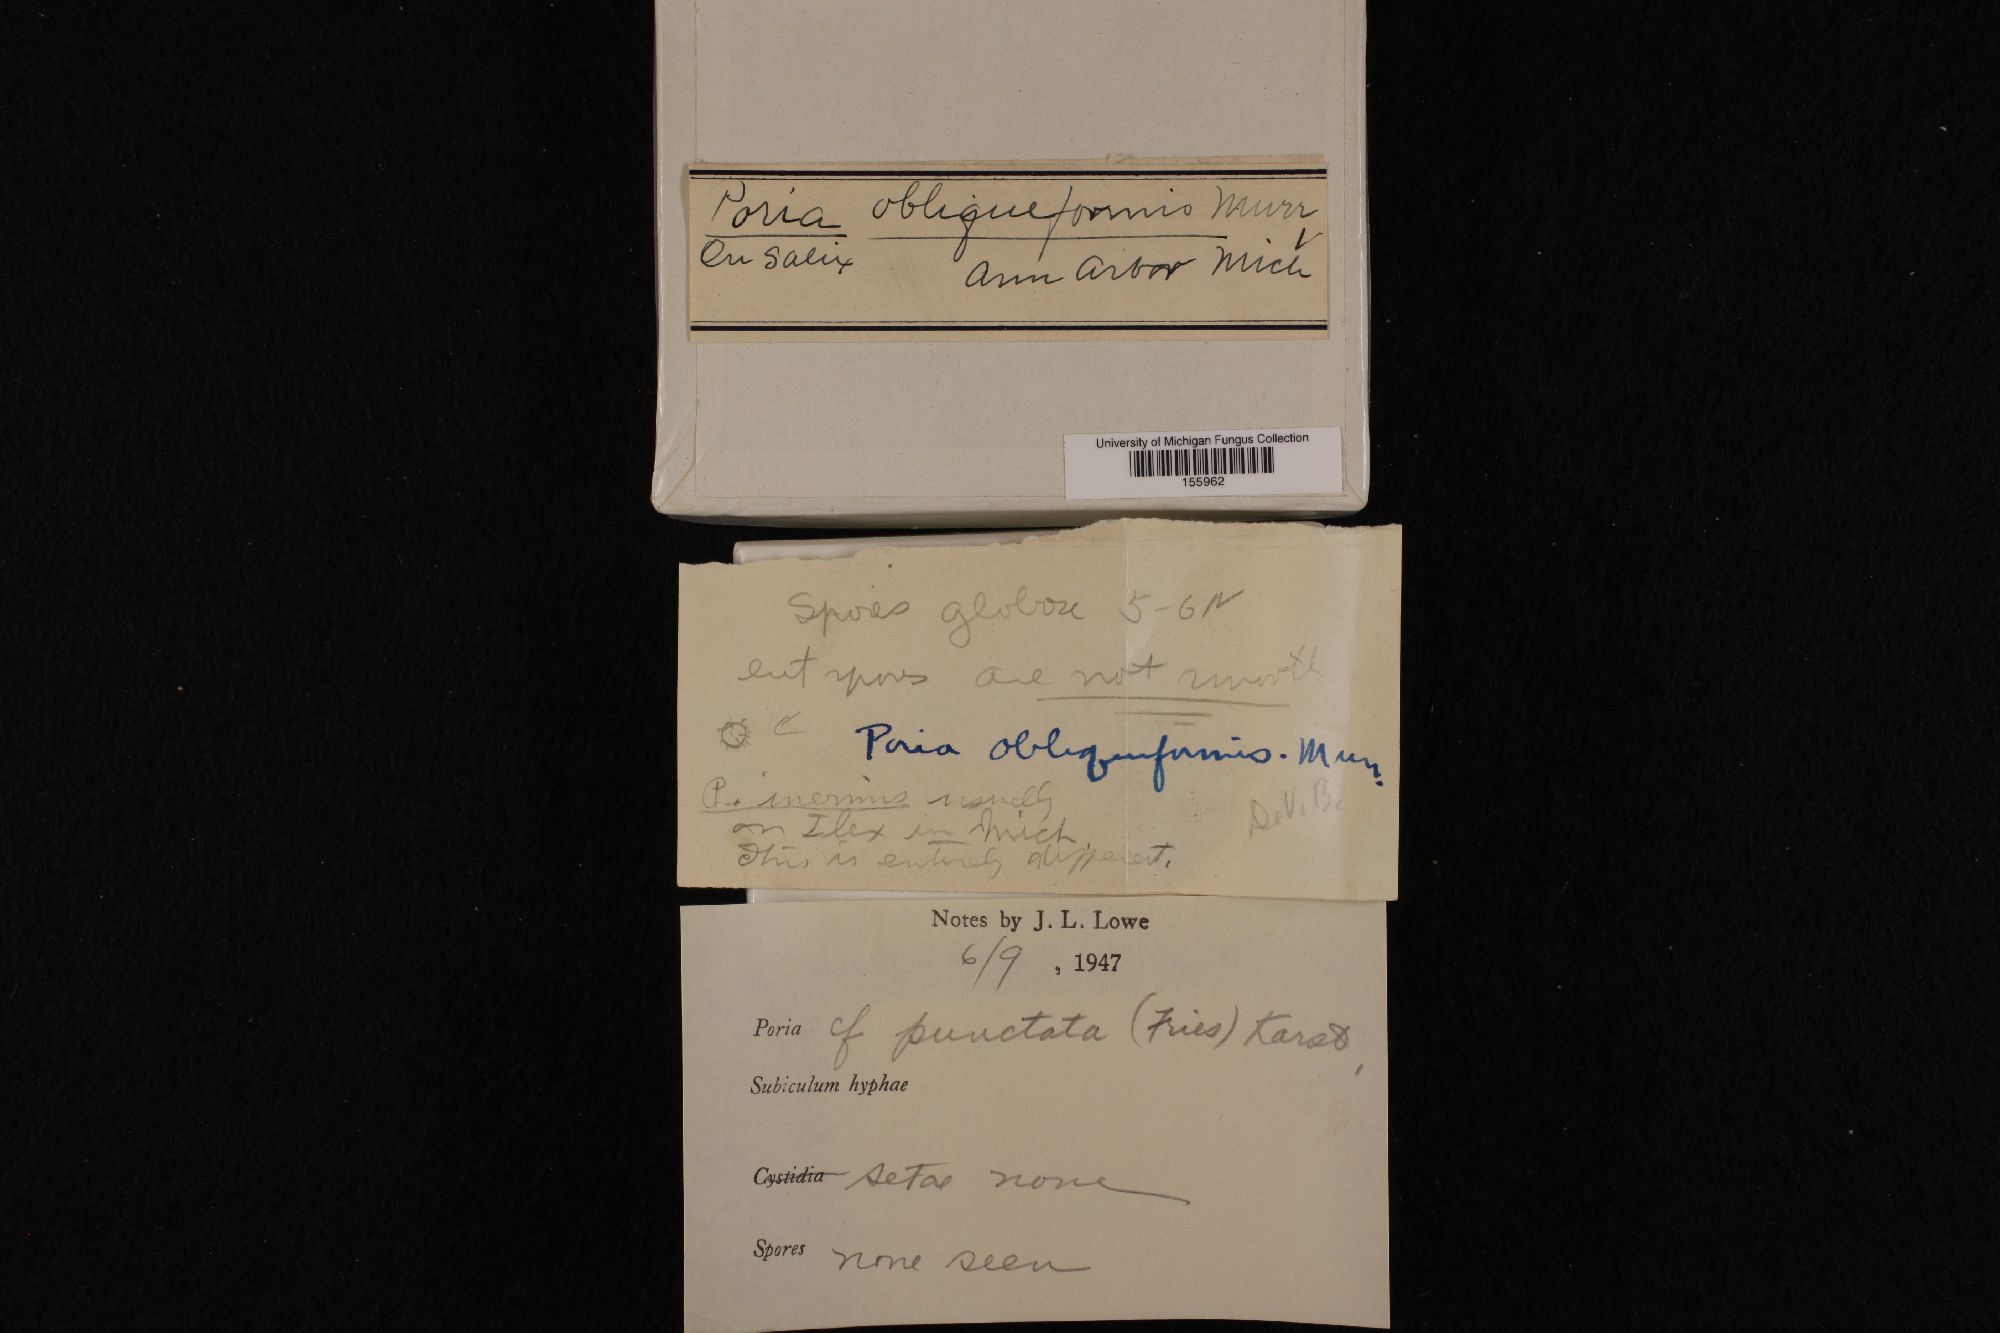 Poria obliqueformis Murr
On Salix
Ann Arbor Mich
University of Michigan Fungus Collection
155962
Spores globose 5-6µ
spores are not smooth
Poria obliqueformis. Murr.
P. inermis usually
on Ilex in Mich.
This is entirely different.
D.V.B.
Notes by J. L. Lowe
6/9 , 1947
Poria cf punctata (Fries) Karst.
Subiculum hyphae
Cystidia setae none
Spores none seen